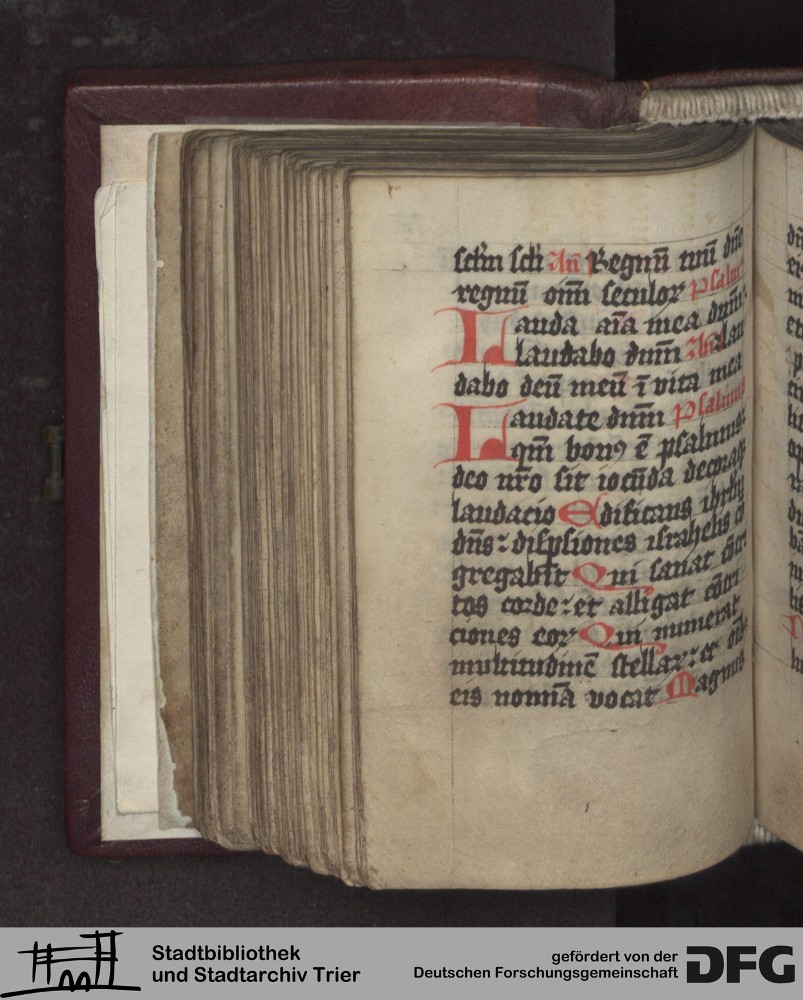 sclm scli An Regnū tuū dn̄e
regnū om̄i seculoꝝ Psalm⁹
Lauda aīa mea dnm̄:
laudabo dnm̄ An lau
dabo deū meū ī vita mea
Laudate dnm̄ Psalmus
qm̄ bonꝰ ē psalmus:
deo nr̄o sit iocūda decoraqꝫ
laudacio Edificans ihrl̄m
dn̄s: disp̄siones israhelis cō
gregabit Qui sanat cōtri
tos corde: et alligat cōtri
ciones eoꝝ Qui numerat
multitudinē stellaꝝ: et oīb
eis nomīa vocat Magnus
Stadtbibliothek
und Stadtarchiv Trier
gefördert von der
Deutschen Forschungsgemeinschaft
DFG